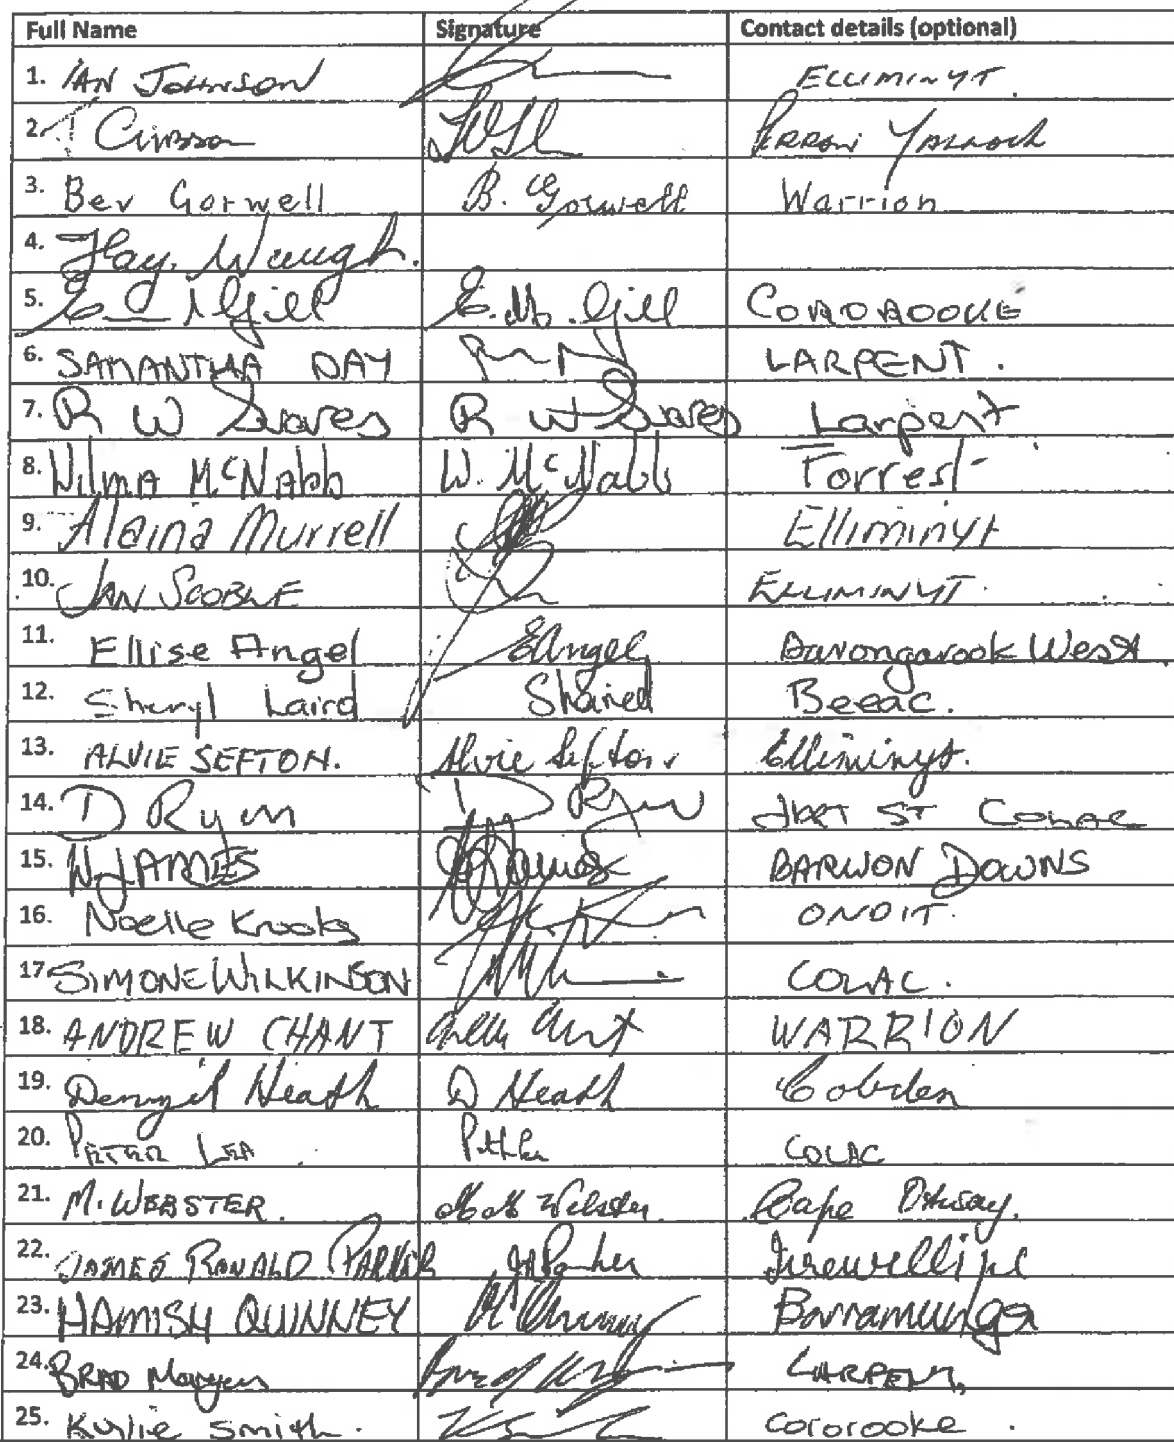 Full Name Signature Contact details (optional)
1. IAN JOHNSON ELLIMINYT
2. Perron Yallock
3. Bev Gorwell B. Gorwell Warrion
4. Waugh.
5. Gill E.M. Gill COROROOKE
6. SAMANTHA DAY LARPENT.
7. R W R W Larpent
8. Wilma McNabb W. McNabb Forrest
9. Alaina Murrell Elliminyt
10. JAN SCOBLE ELLIMINYT.
11. Ellise Angel EAngel Barongarook West
12. Sheryl Laird Beeac.
13. ALVIE SEFTON. Alvie Sefton Elliminyt.
14. D Ryan D Ryan HART ST COLAC
15. N. JAMES BARWON DOWNS
16. Noelle ONDIT.
17. SIMONE WILKINSON COLAC.
18. ANDREW CHANT WARRION
19. Denzil Heath D Heath Cobden
20. PETER LEA COLAC
21. M. WEBSTER. Webster Cape Otway.
22. JAMES RONALD PARKER Parker Irrewillipe
23. HAMISH QUINNEY Barramunga
24. BRAD LARPENT,
25. Kylie Smith. Cororooke.